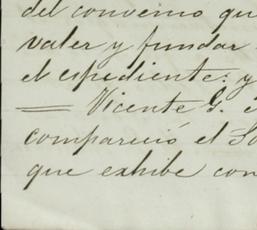 del convenio qu
valer y fundar
el espediente: y
Vicente G.
compareció el So
que exhibe con